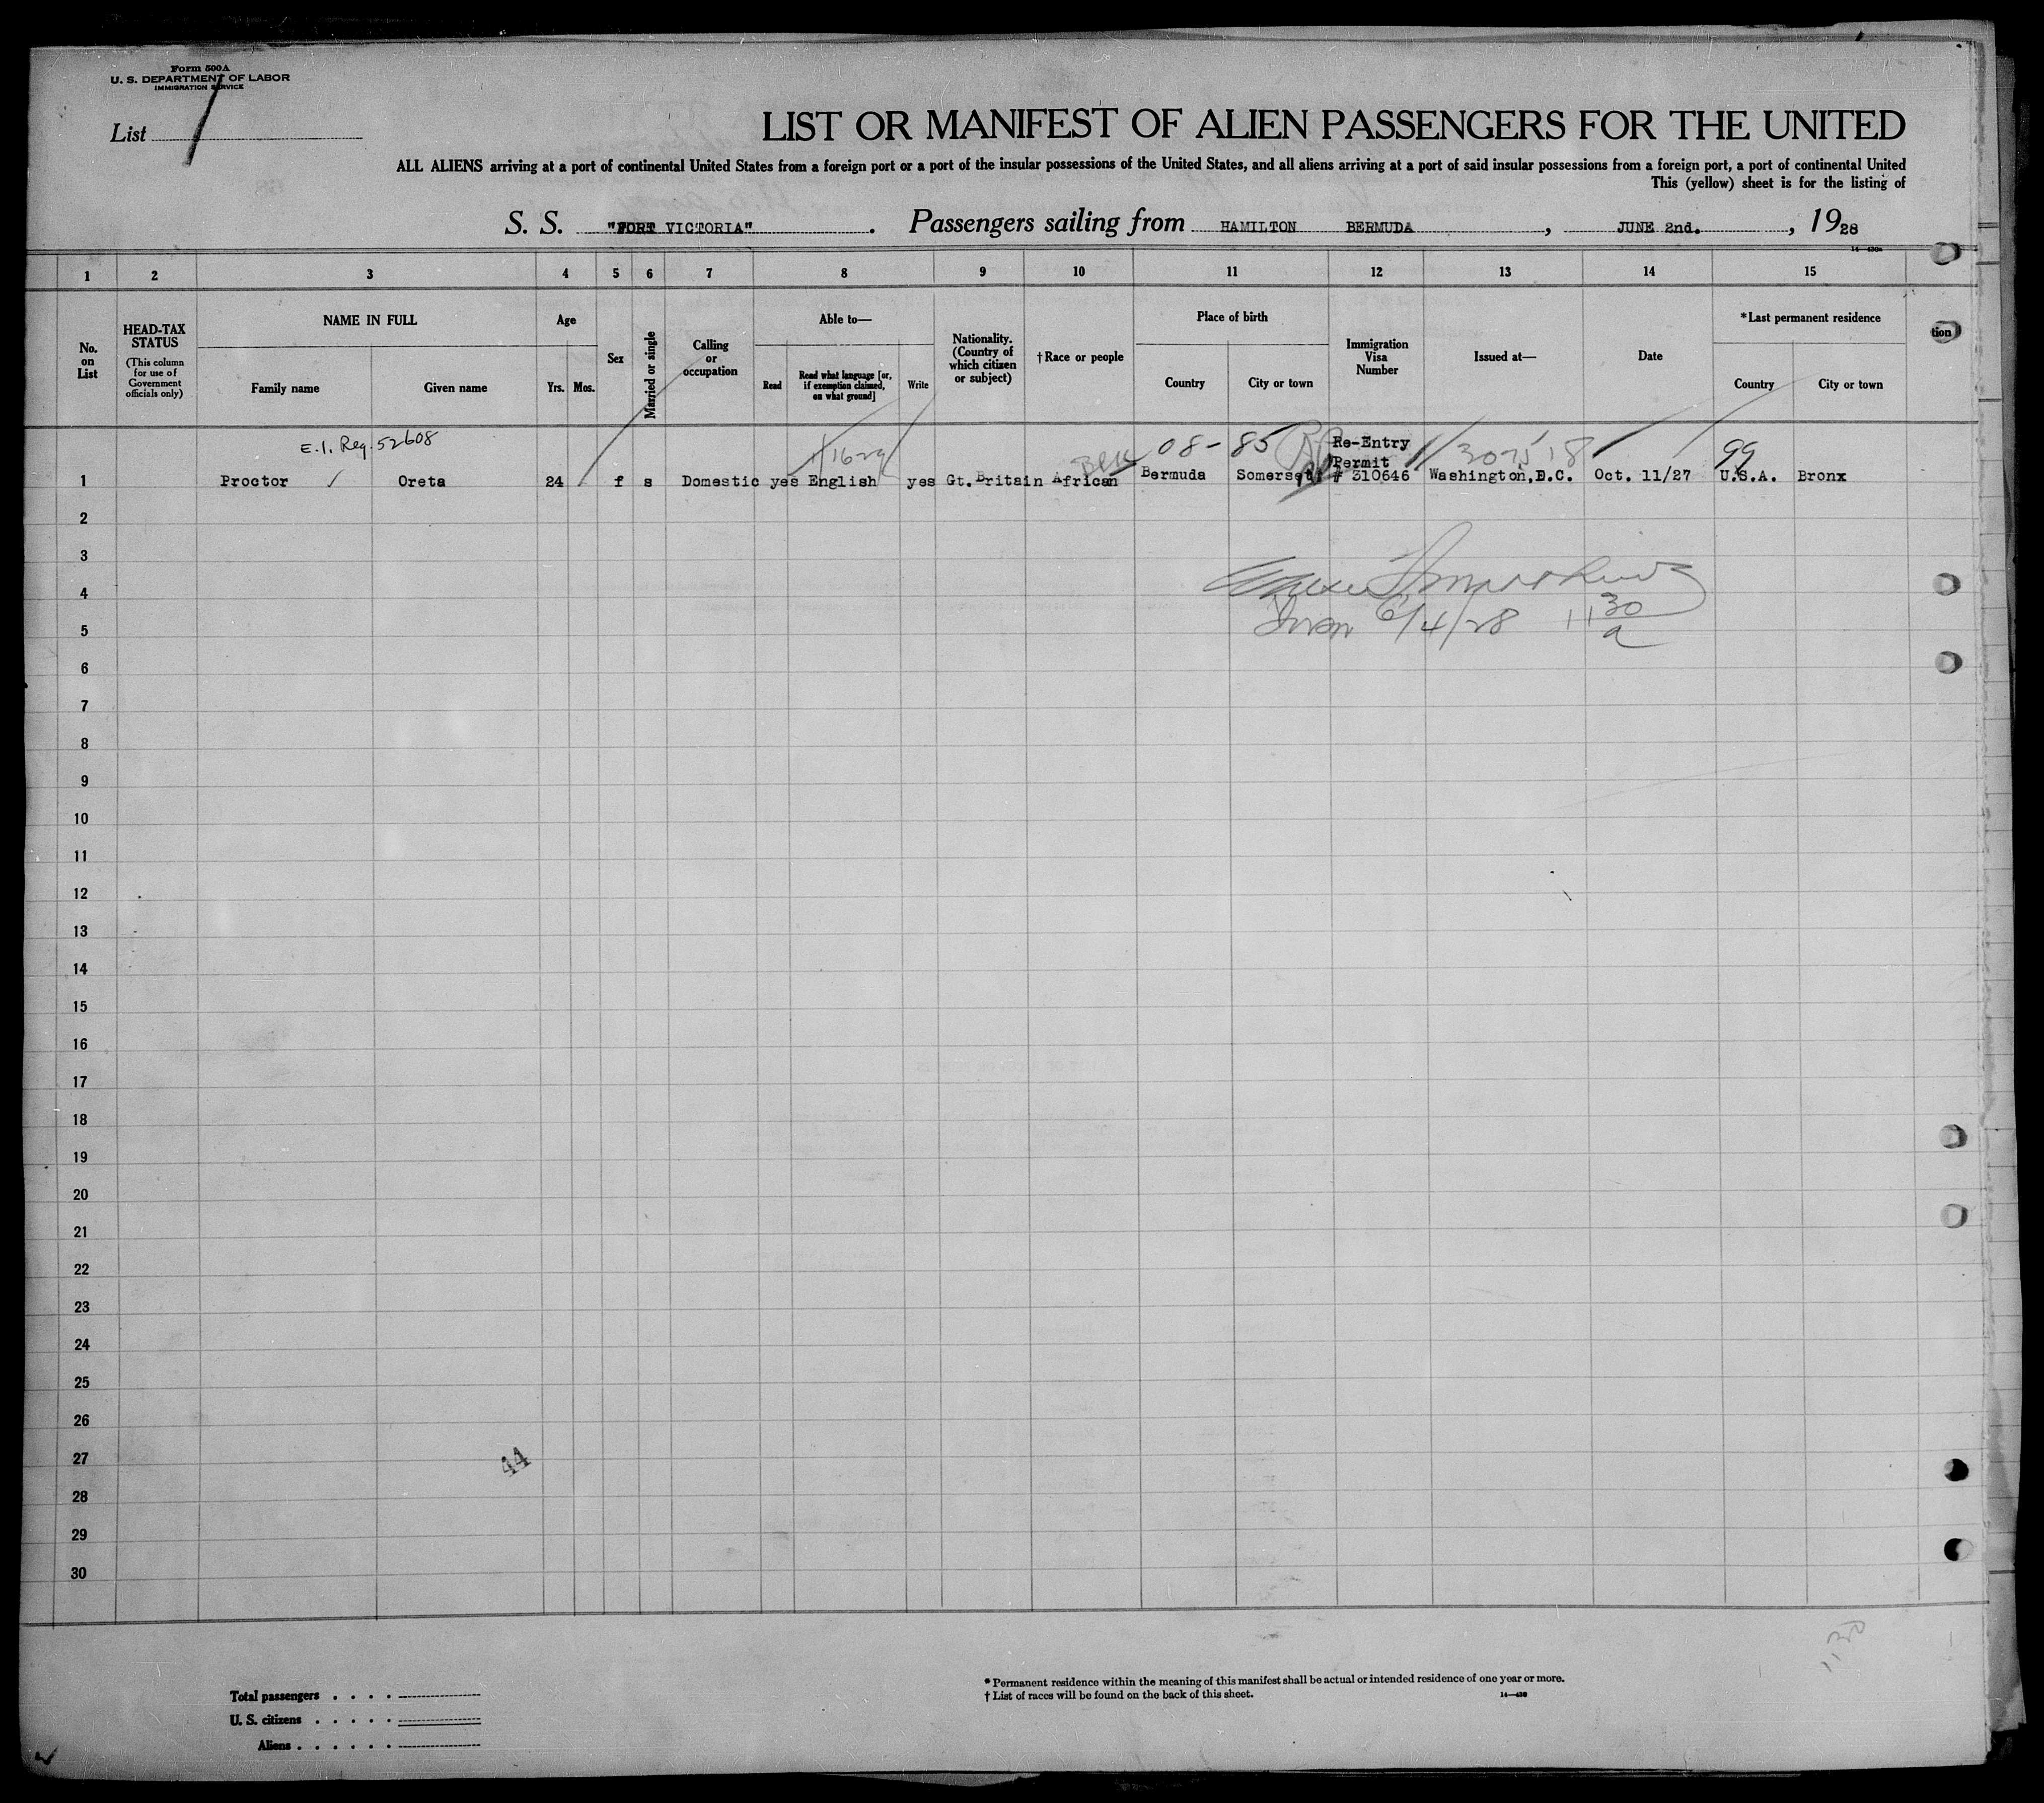 Form 500A
U. S. DEPARTMENT OF LABOR
IMMIGRATION SERVICE
List 1
LIST OR MANIFEST OF ALIEN PASSENGERS FOR THE UNITED
ALL ALIENS arriving at a port of continental United States from a foreign port or a port of the insular possessions of the United States, and all aliens arriving at a port of said insular possessions from a foreign port, a port of continental United
This (yellow) sheet is for the listing of
S. S. "FORT VICTORIA" . Passengers sailing from HAMILTON BERMUDA , JUNE 2nd. , 1928
1 2 3 4 5 6 7 8 9 10 11 12 13 14 15
No. on List
HEAD-TAX STATUS
(This column for use of Government officials only)
NAME IN FULL
Family name Given name
Age
Yrs. Mos.
Sex
Married or single
Calling or occupation
Able to—
Read
Read what language [or, if exemption claimed, on what ground]
Write
Nationality. (Country of which citizen or subject)
†Race or people
Place of birth
Country City or town
Immigration Visa Number
Issued at—
Date
*Last permanent residence
Country City or town
tion
E.I. Reg. 52608
08- 85 Re-Entry 99
Permit
1 Proctor Oreta 24 f s Domestic yes English yes Gt. Britain African Bermuda Somerset # 310646 Washington, D.C. Oct. 11/27 U.S.A. Bronx
2
3
4
6/4/28 11 30 a
5
6
7
8
9
10
11
12
13
14
15
16
17
18
19
20
21
22
23
24
25
26
27
44
28
29
30
Total passengers . . . .
U. S. citizens . . . . .
Aliens . . . . . .
* Permanent residence within the meaning of this manifest shall be actual or intended residence of one year or more.
† List of races will be found on the back of this sheet.